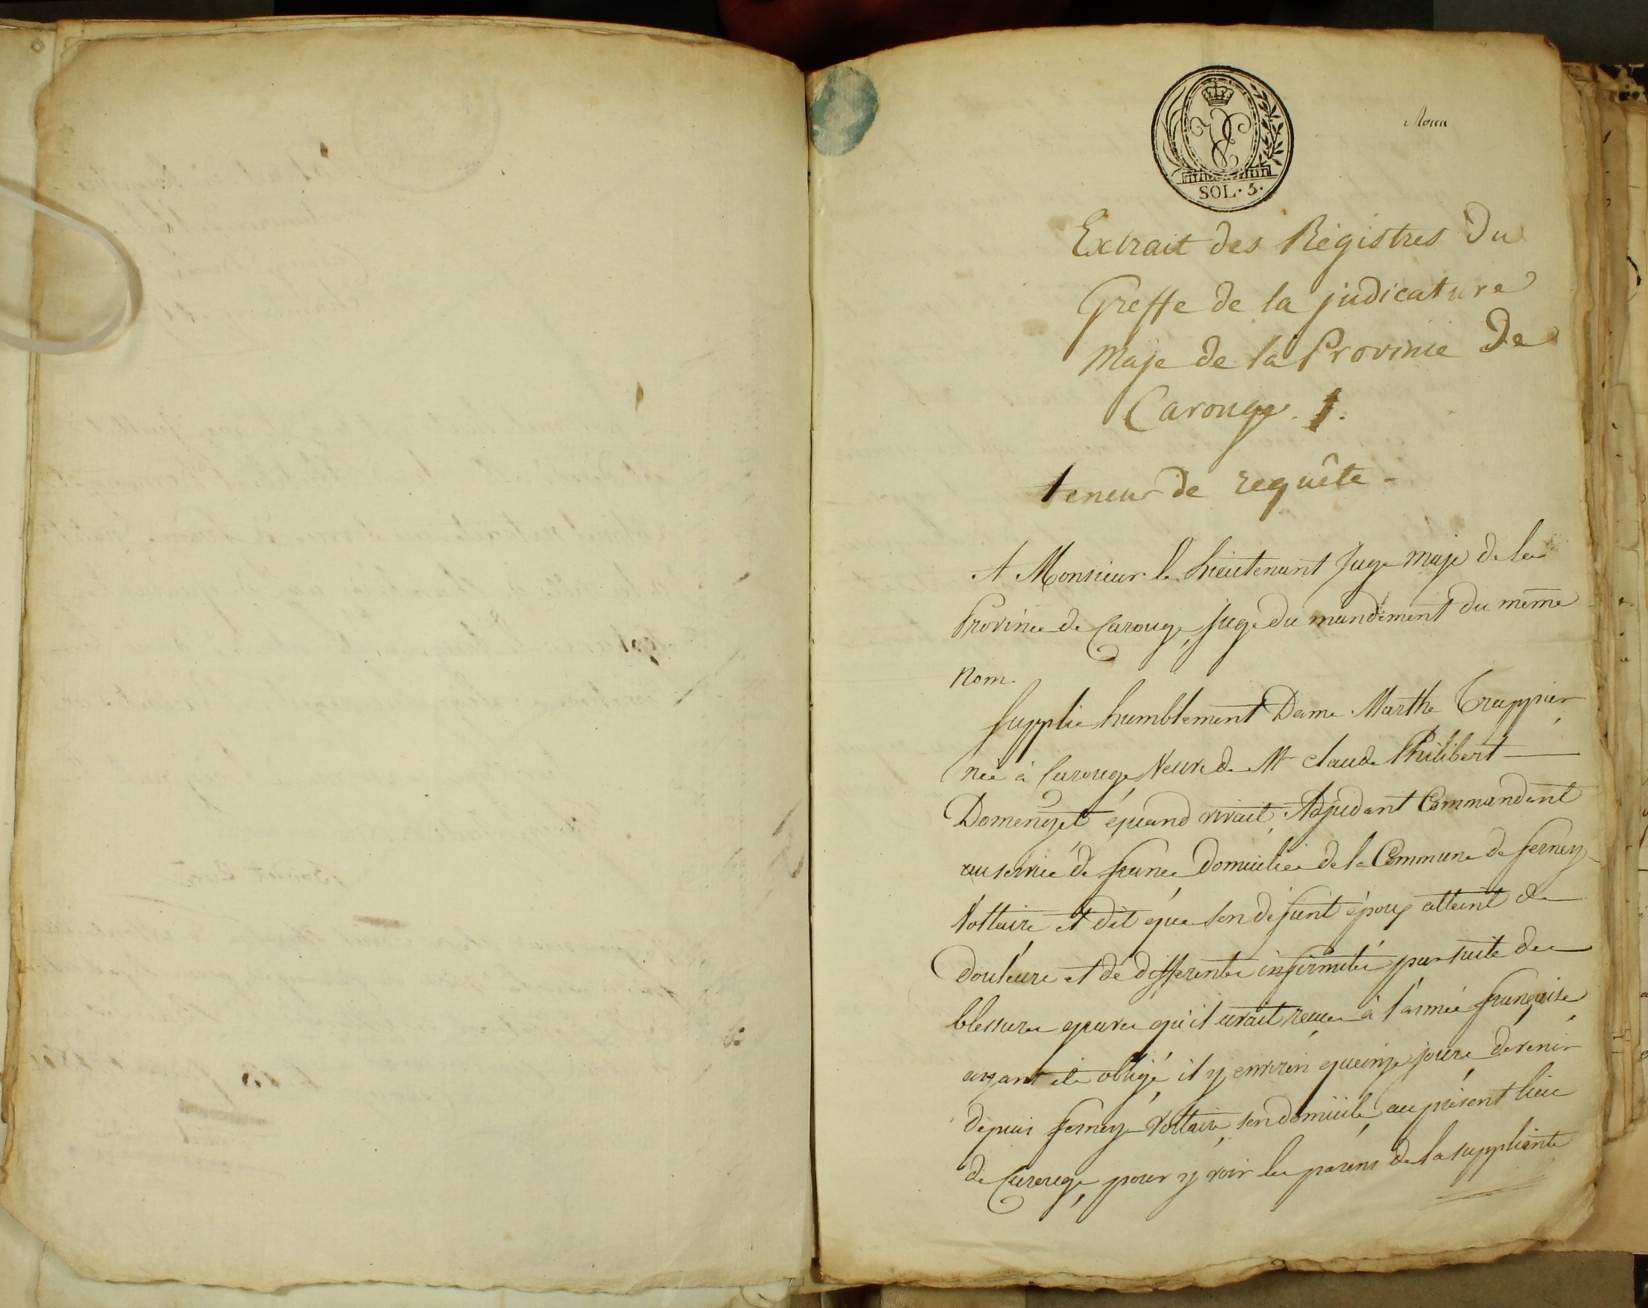 SOL. 5.
Extrait des Régistres Du
Greffe de la judicature
Maje de la Province De
Carouge. 1.
teneur de requête -
A Monsieur le Lieutenant Juge maje de la
Province de Carouge, Juge du mandement du même
Nom.
Supplie humblement Dame Marthe Trappier
née à Carouge, Veuve de Mr Claude Philibert
Domenget quand vivait, Adjudant Commandant
au service de france Domiciliée de la Commune de ferney
Voltaire et dit que son défunt époux atteint de
Douleurs et de differentes infirmités par suite de
blessures graves qu'il avait reçues à l'armée française
ayant été obligé il y environ quinze jours, de venir
depuis ferney Voltaire, son domicile, au présent lieu
de Carouge, pour y voir les parens de la suppliante